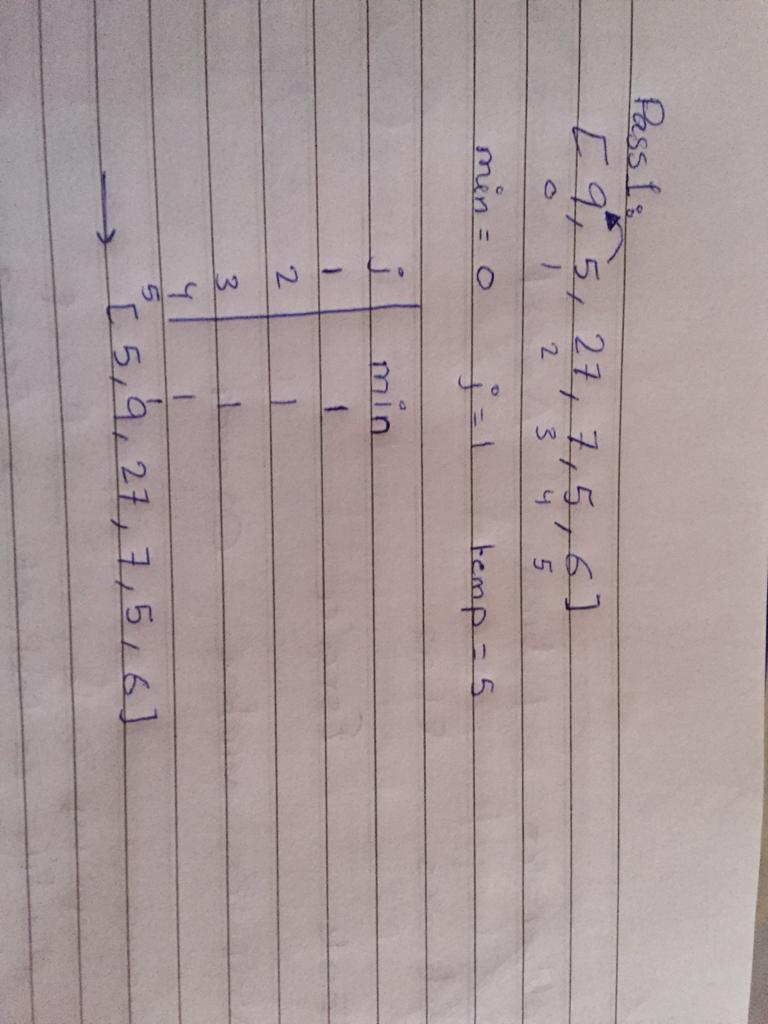 Pass 1:
[9, 5, 27, 7, 5, 6]
0 1 2 3 4 5
min = 0 j = 1 temp = 5
j min
1 1
2 1
3 1
4 1
5 1
→ [5, 9, 27, 7, 5, 6]